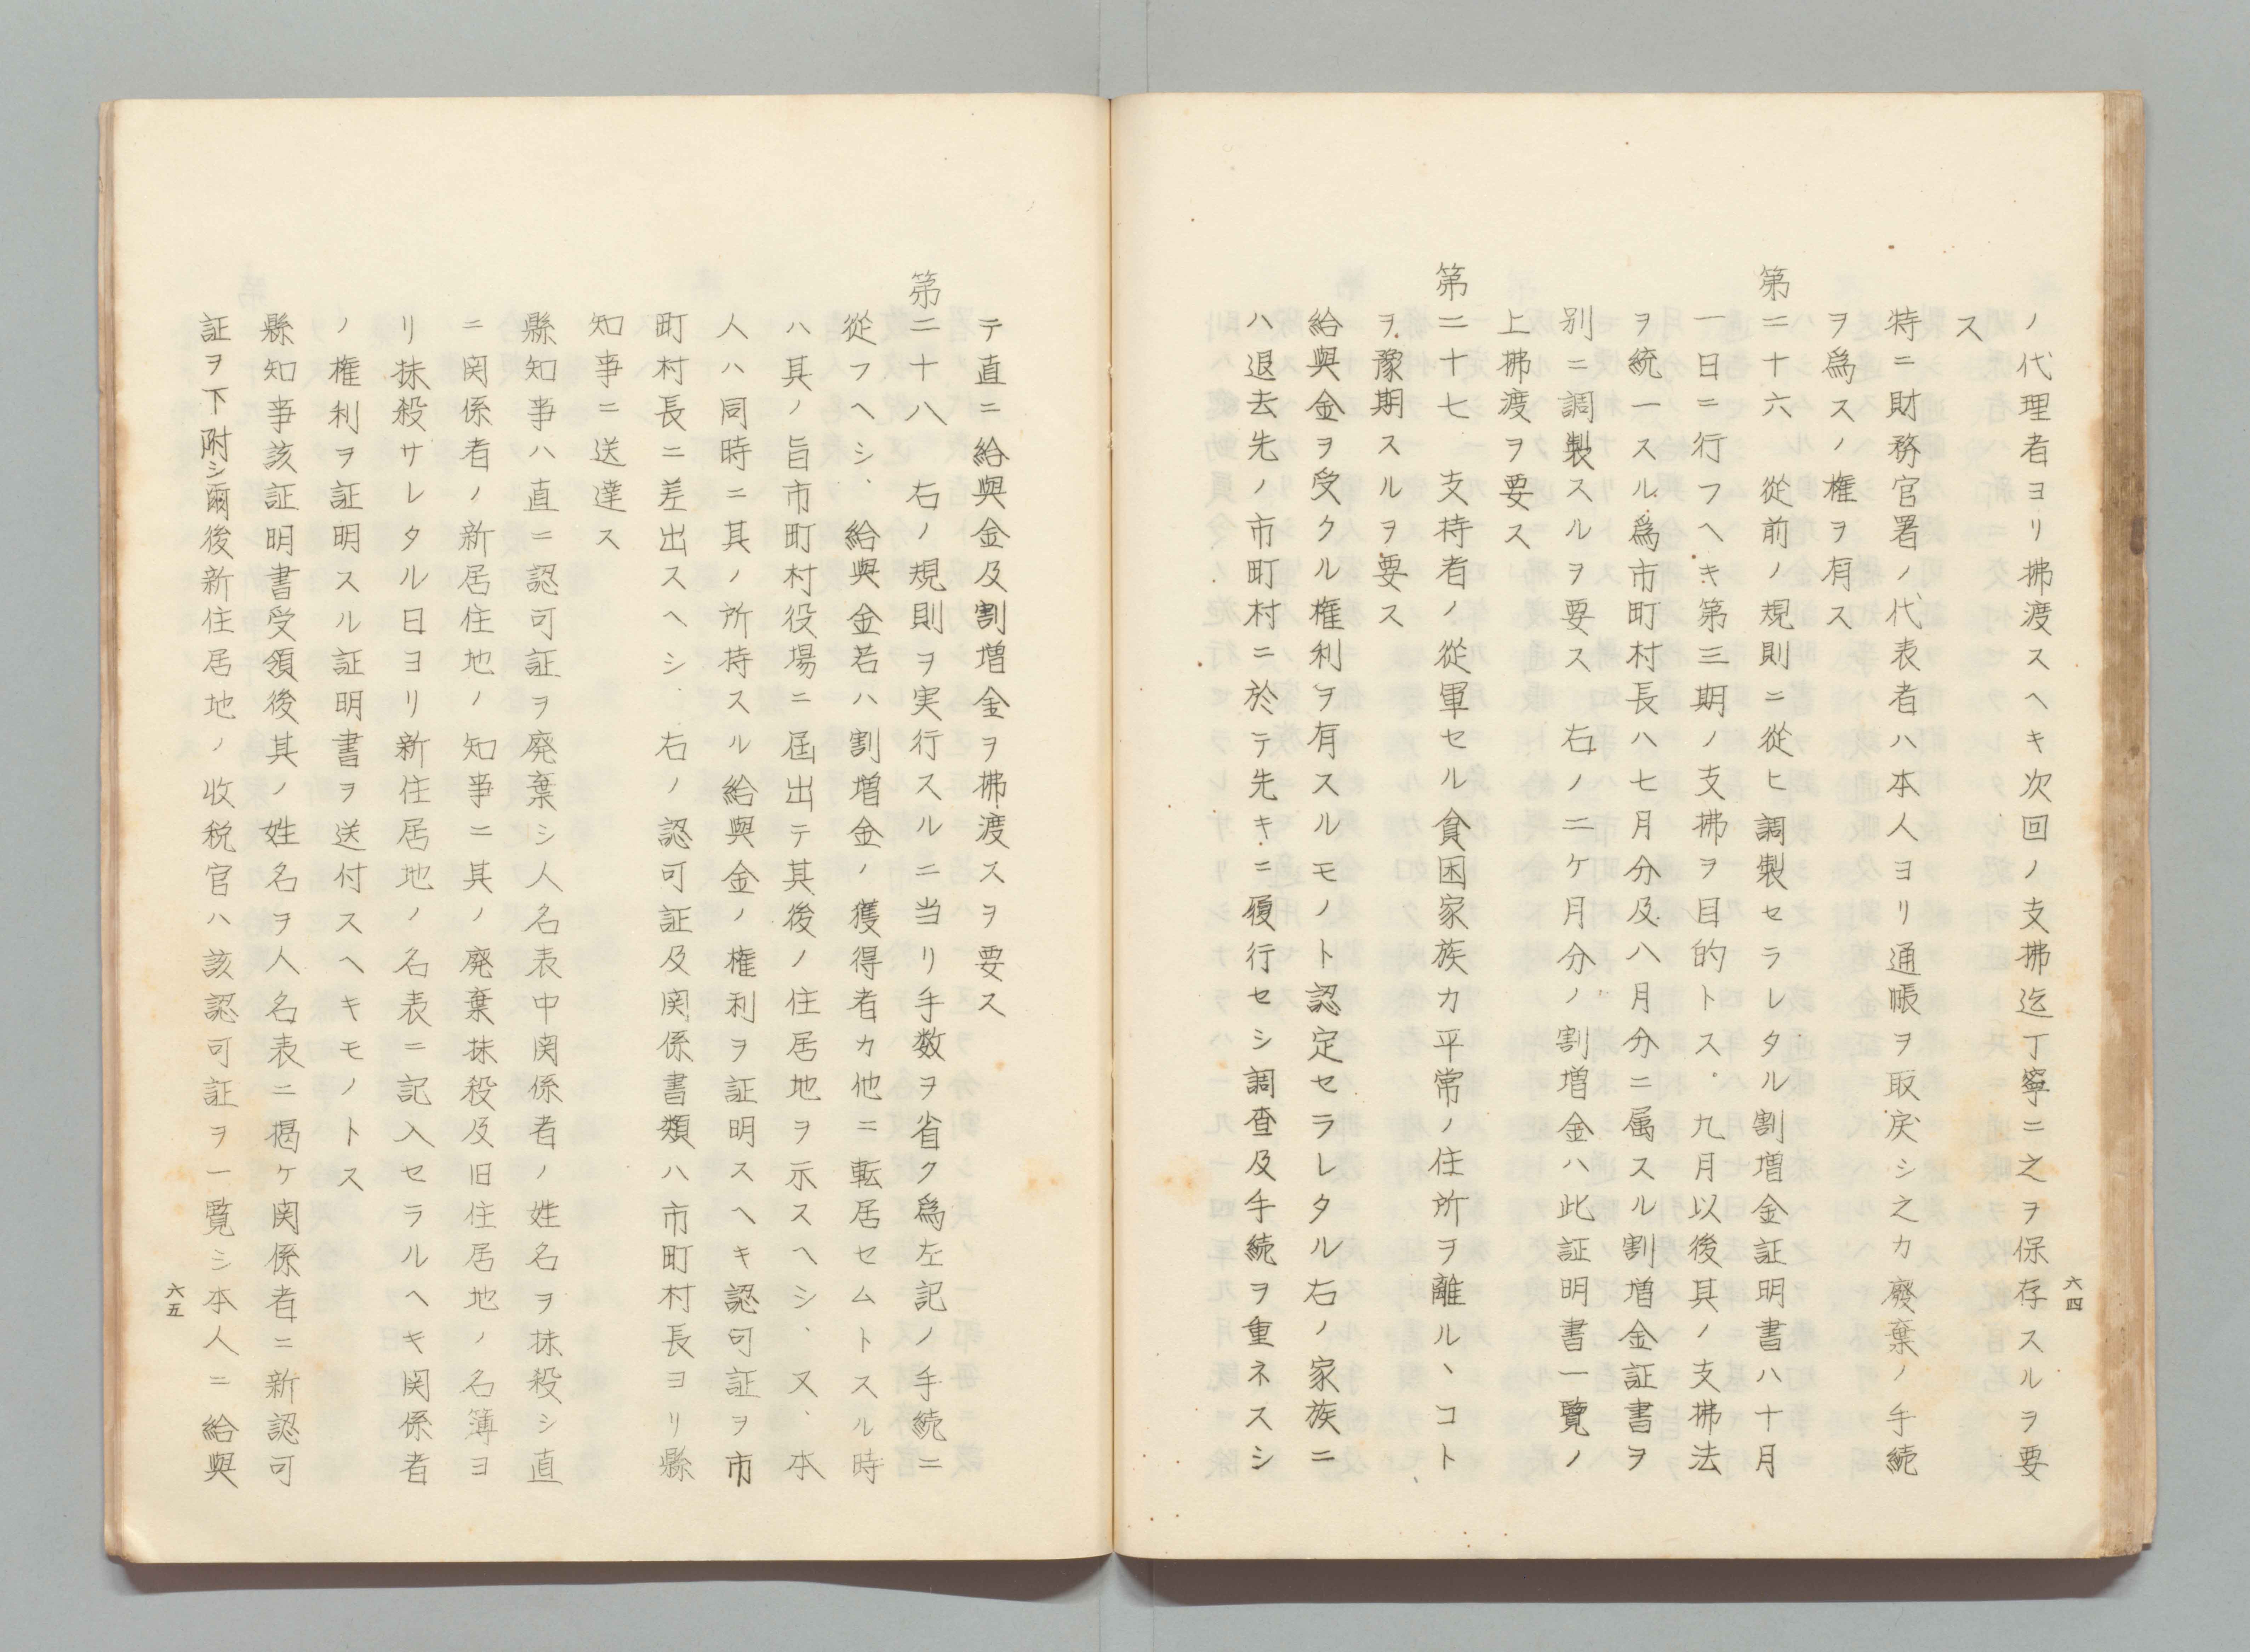 ノ代理者ヨリ拂渡スヘキ次回ノ支拂迄丁寧ニ之ヲ保存スルヲ要
ス
特ニ財務官署ノ代表者ハ本人ヨリ通帳ヲ取戻シ之カ廢棄ノ手続
ヲ為スノ権ヲ有ス
第二十六　従前ノ規則ニ従ヒ調製セラレタル割増金証明書ハ十月
一日ニ行フヘキ第三期ノ支拂ヲ目的トス．九月以後其ノ支拂法
ヲ統一スル為市町村長ハ七月分及八月分ニ属スル割増金証書ヲ
別ニ調製スルヲ要ス　右ノ二ケ月分ノ割増金ハ此証明書一覽ノ
上拂渡ヲ要ス
第二十七　支持者ノ従軍セル貧困家族カ平常ノ住所ヲ離ルヽコト
ヲ豫期スルヲ要ス
給與金ヲ受クル権利ヲ有スルモノト認定セラレタル右ノ家族ニ
ハ退去先ノ市町村ニ於テ先キニ履行セシ調査及手続ヲ重ネスシ
六四
テ直ニ給與金及割増金ヲ拂渡スヲ要ス
第二十八　右ノ規則ヲ実行スルニ当リ手数ヲ省ク為左記ノ手続ニ
従フヘシ、給與金若ハ割増金ノ獲得者カ他ニ転居セムトスル時
ハ其ノ旨市町村役場ニ届出テ其後ノ住居地ヲ示スヘシ、又、本
人ハ同時ニ其ノ所持スル給與金ノ権利ヲ証明スヘキ認可証ヲ市
町村長ニ差出スヘシ　右ノ認可証及関係書類ハ市町村長ヨリ縣
知事ニ送達ス
縣知事ハ直ニ認可証ヲ廃棄シ人名表中関係者ノ姓名ヲ抹殺シ直
ニ関係者ノ新居住地ノ知事ニ其ノ廃棄抹殺及旧住居地ノ名簿ヨ
リ抹殺サレタル日ヨリ新住居地ノ名表ニ記入セラルヘキ関係者
ノ権利ヲ証明スル証明書ヲ送付スヘキモノトス
縣知事該証明書受領後其ノ姓名ヲ人名表ニ掲ケ関係者ニ新認可
証ヲ下附シ爾後新住居地ノ收税官ハ該認可証ヲ一覽シ本人ニ給與
六五